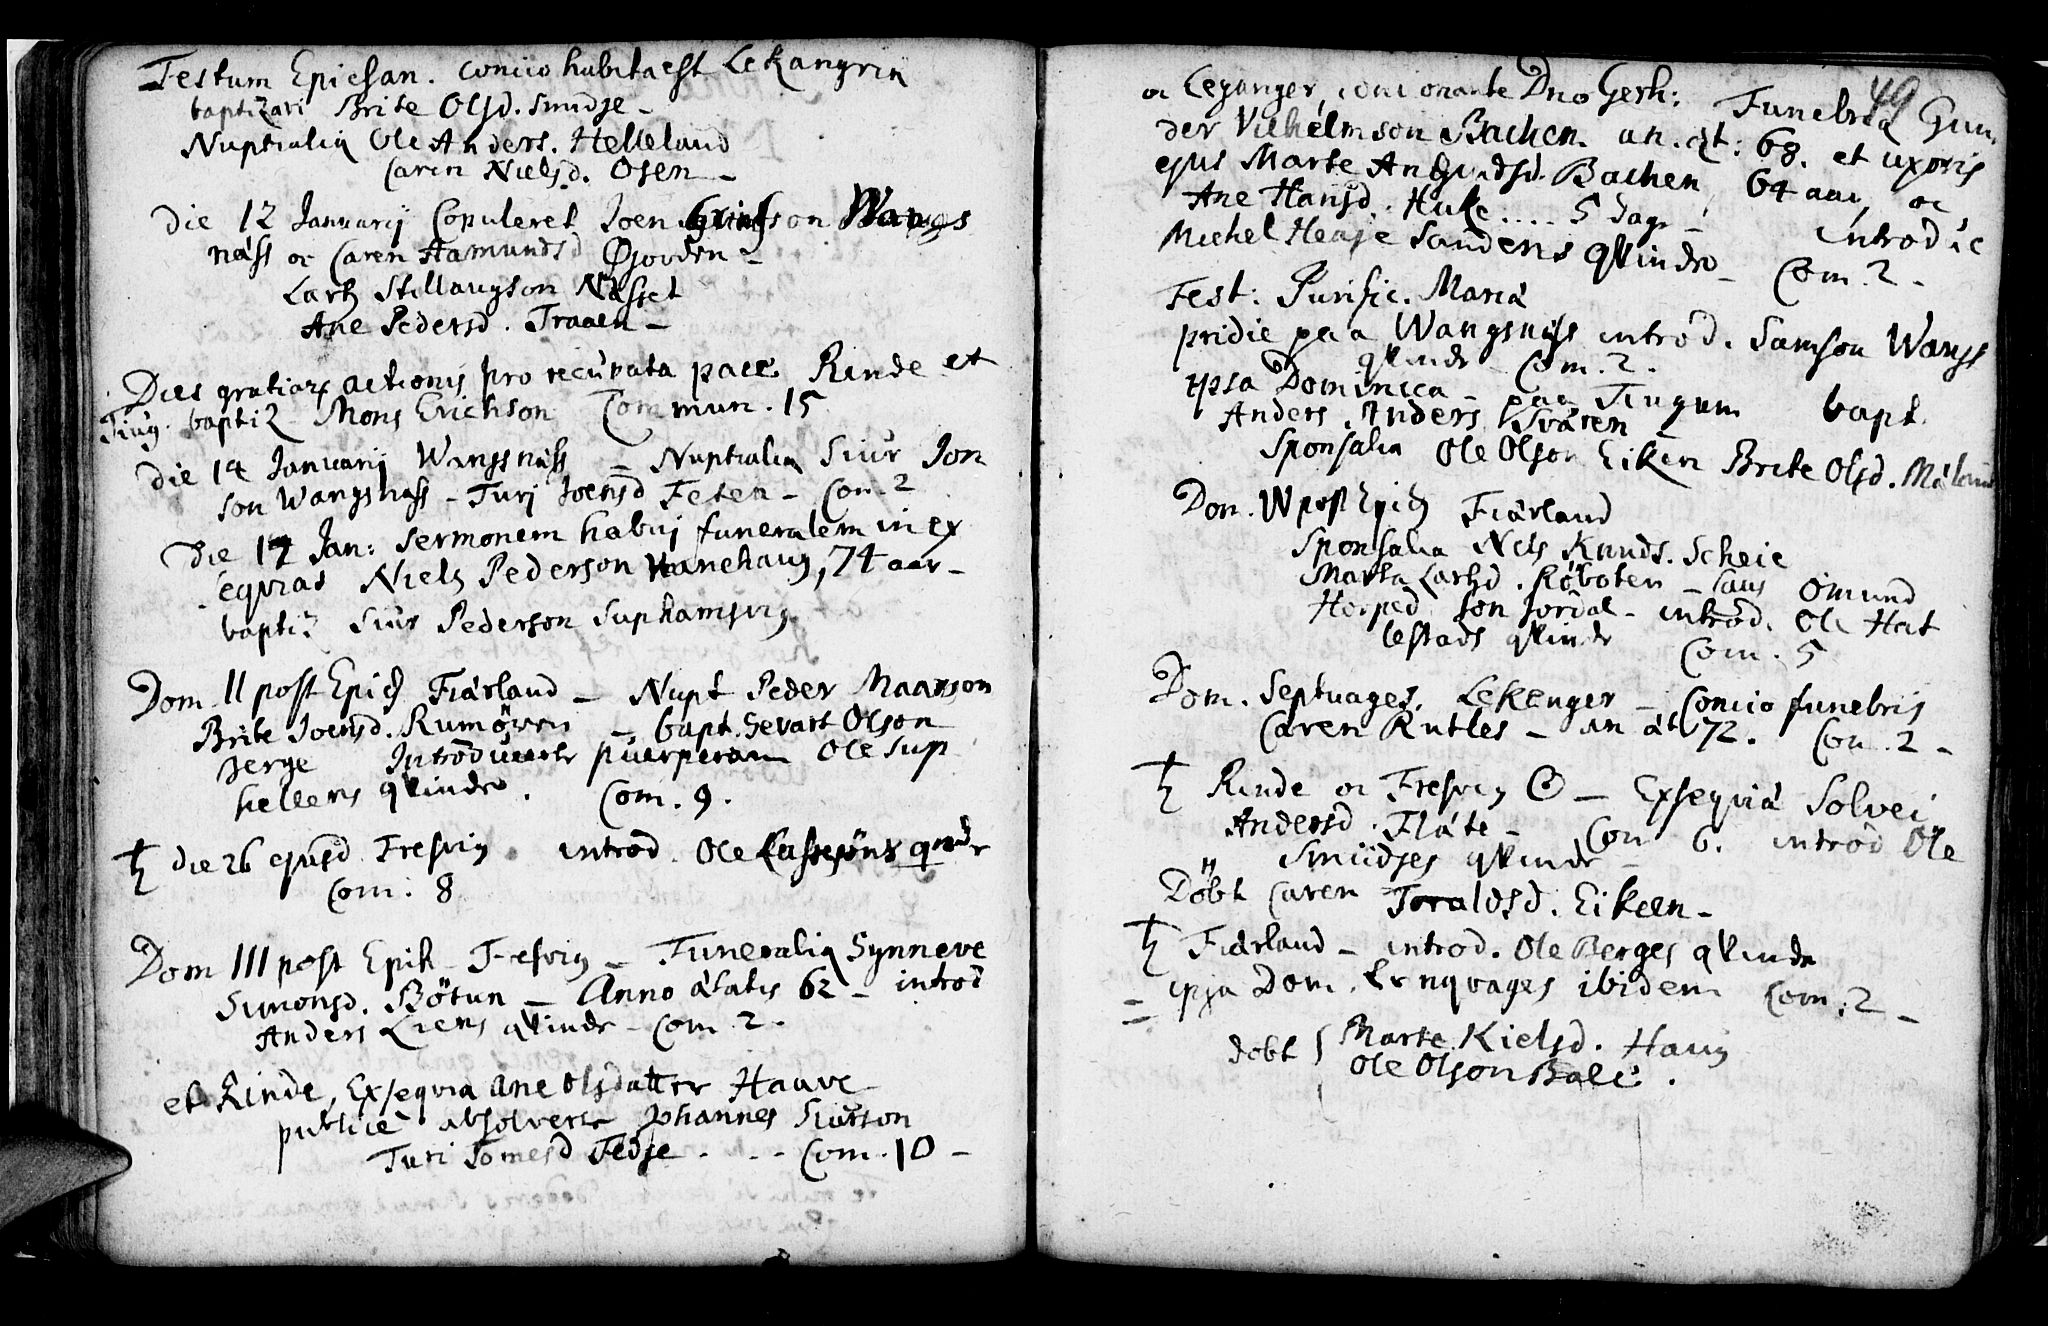 Festum Epiphan. concio habita est Lekangrin
baptizavi Brite Olsd. Smidje -
Nuptialia Ole Anders. Helleland
Caren Nielsd. Osen -
Die 12 Januarij Copuleret Joen son Wangs
näss oc Caren Hamundsd Øjorden -
Lars Stellaugson Nässet
Ane Pedersd. Traaen -
Dies gratiar. actionis pro recuperata pace Rinde et
Tiug. baptiz Mons Erichson Commun. 15
die 14 Januarij Wangsnäss = Nuptialia Siur Jon
son Wangsnäss - Turj Joensd Feten - Com. 2
Die 17 Jan: sermonem habuj funeralem in ex
eqvias Niels Pederson Hanehaug, 74 aar -
baptiz Siur Pederson Suphamsvig
Dom. II post Epiph Fiärland - Nupt Peder Maarson
Brite Joensd. Rumören - bapt. Sevart Olson
Berge Introducerte puerperam Ole Sup
hellens qvinde. Com. 9.
♄ die 26 ejusd Fresvig introd. Ole qvinde
Com: 8
Dom III post Epiph - Fresvig - Funeralia Synneve
Simonsd. Bötun - Anno ätatis 62 - introd
Anders Liens qvinde - Com 2.
et Rinde, Exseqvia Ane Olsdatter Hauve
publicè absolverte Johannes Siurson
Turi Tomesd Fedje . . . Com. 10 -
49
oc Leganger, concionante Dno Gerh: Funebria Gun
der Vilhelmson Bachen. an. ät: 68. et uxoris
ejus Marte Bachen 64 aar, oc
Ane Hansd. Huke.... 5 dage - introd ic
Michel Heaje Sandens qvinde - Com. 2 -
Fest: Purific. Mariä
pridie paa Wangsnäss introd. Samson Wangs
qvinde Com. 2.
ipsa Dominica - paa Tiugum bapt.
Anders Anders Kvåren
Sponsalia Ole Olson Eiken Brite Olsd. Mäland
Dom. IV post Epiph Fiärland
Sponsalia Nels Knuds. Scheie
Marta Larsd. Röboten - Omund
son Jordal - introd. Ole Het
lestads qvinde Com. 5
Dom. Septuages. Lekenger - Concio funebris
Caren Rutles - an ät 72. Com. 2 -
♄ Rinde oc Fresvig - Exseqviä Solvei
Andersd. Fläte - Com 6. introd Ole
Smidjes qvinde -
Döbt Caren Toraldsd. Eikeen -
♄ Fiärland - introd. Ole Berges qvinde
= ipsa Dom. Qvinqvages ibidem Com: 2 -
döbt { Marte Kielsd. Haug
Ole Olson Bale.